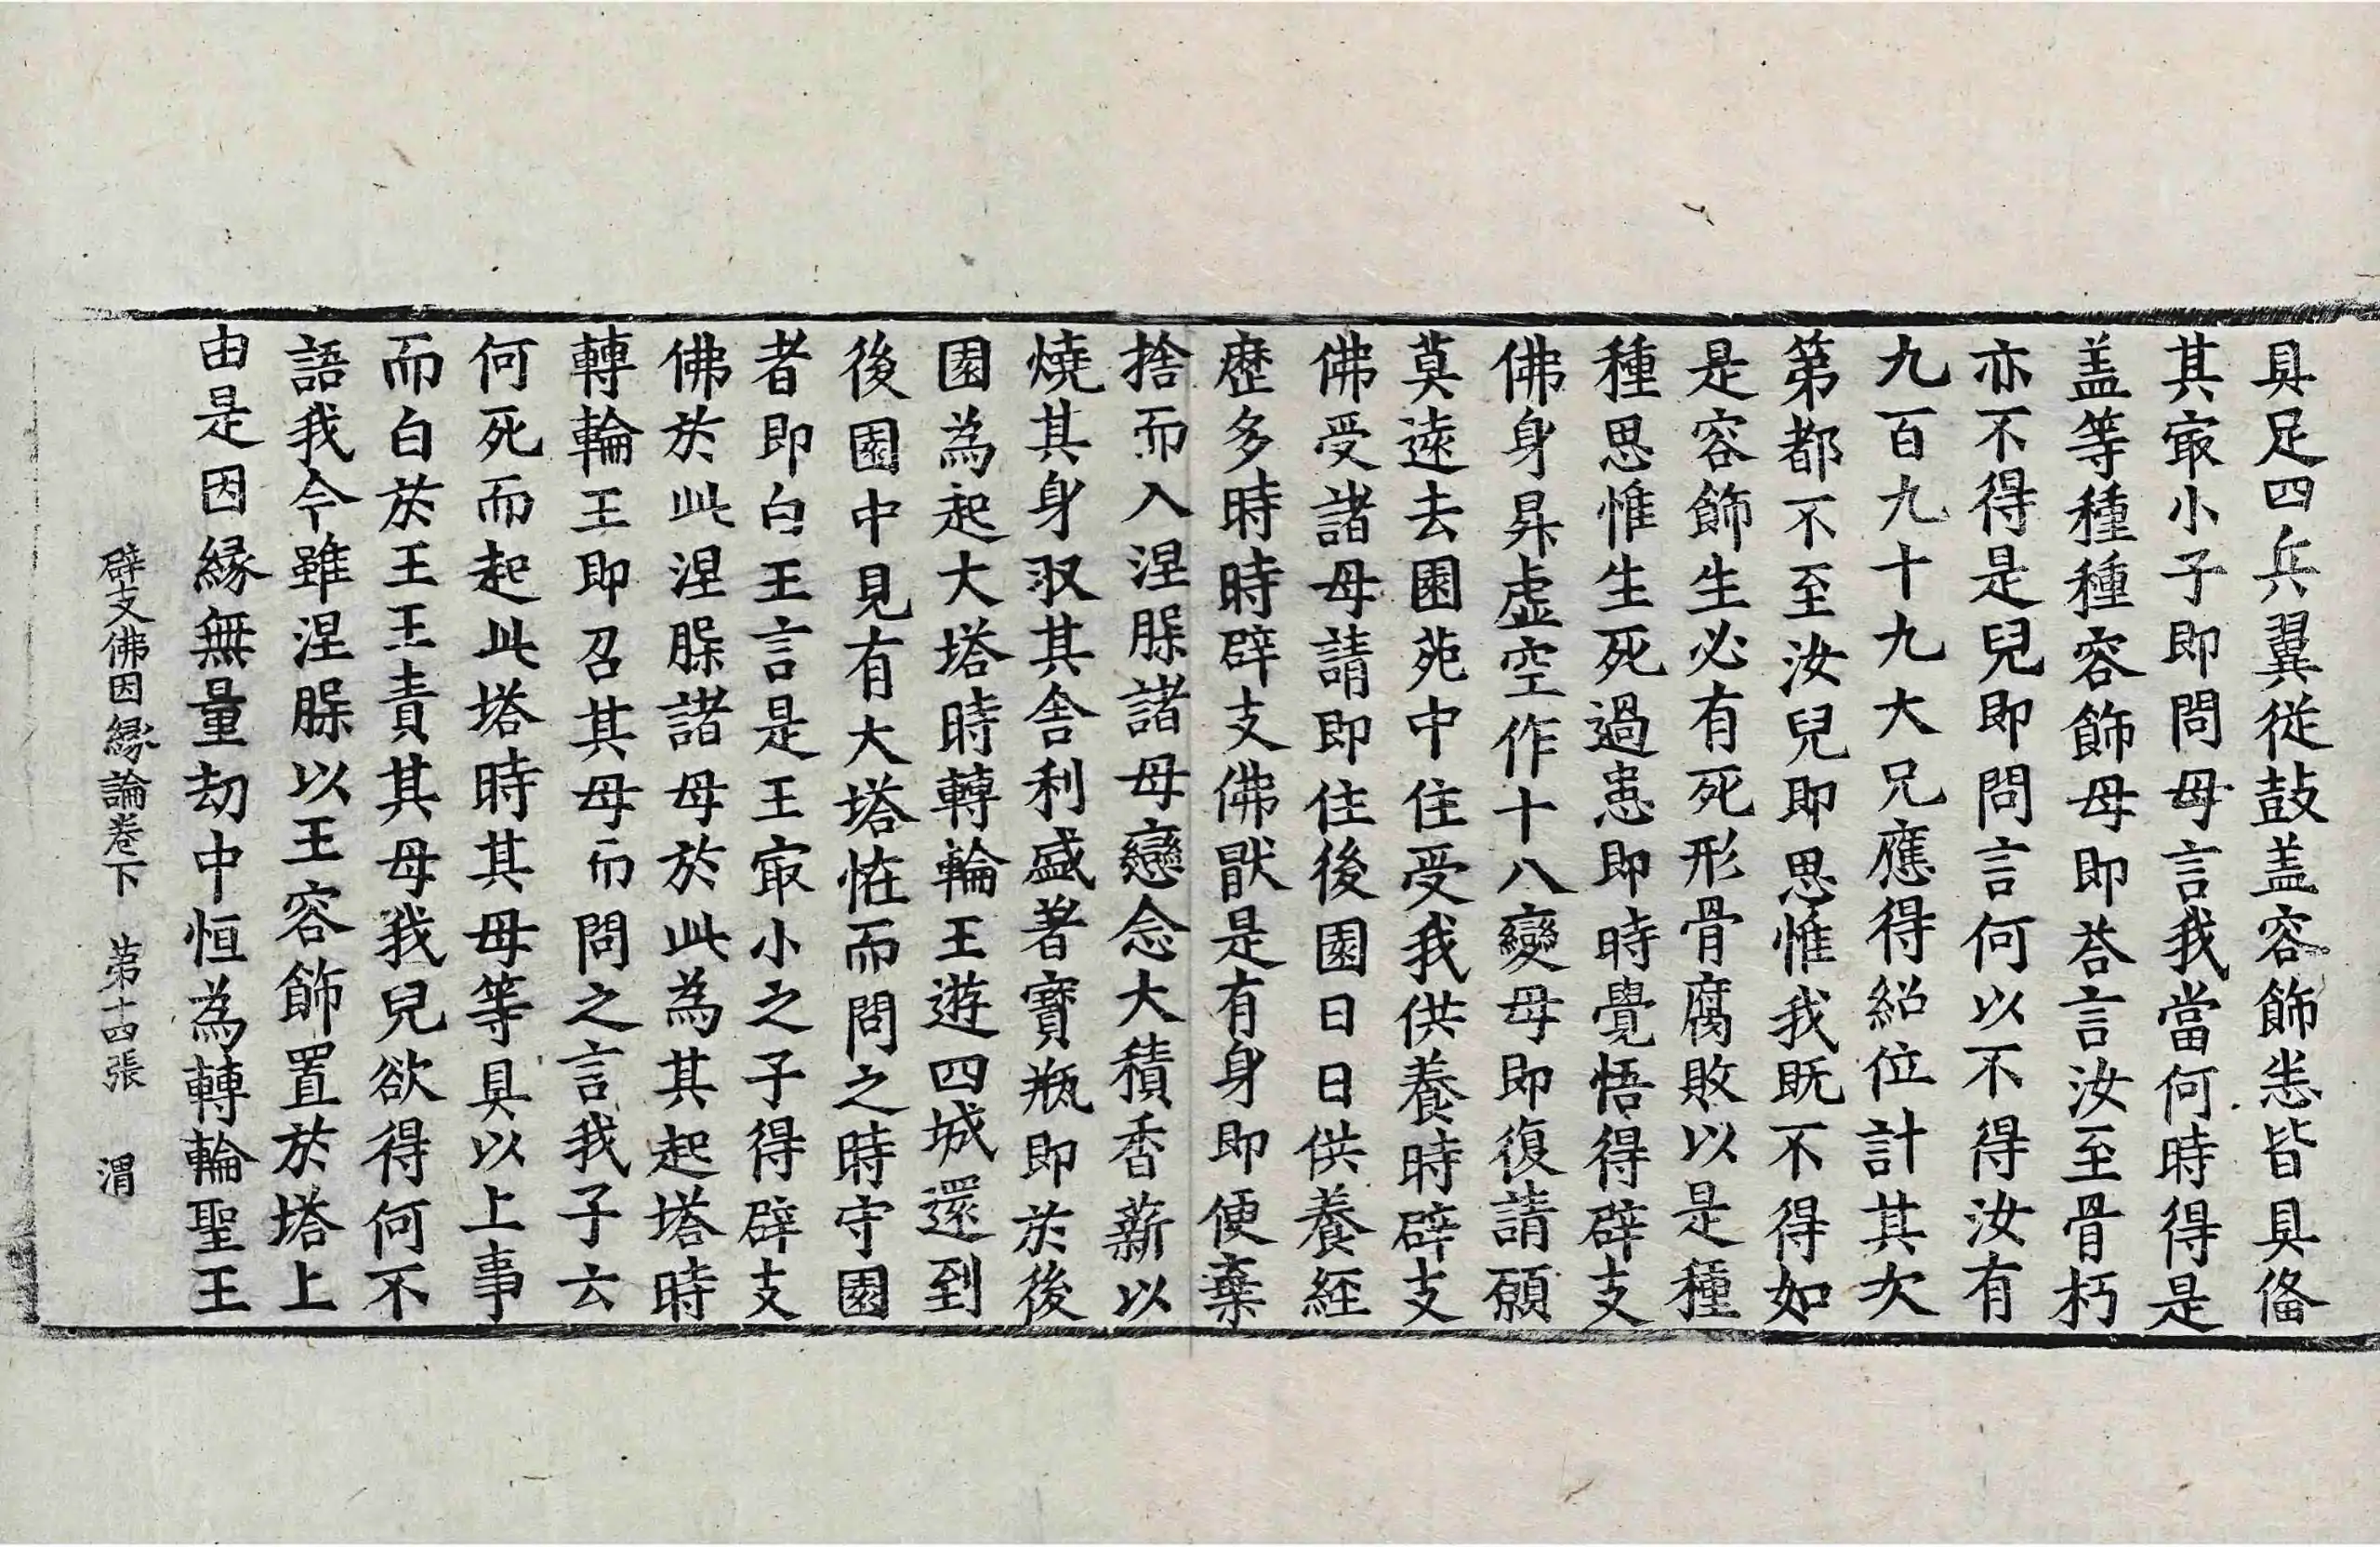 具足四兵翼従鼓盖容飾恙皆具俻
其㝡小子即問母言我當何時得是
盖等種種容飾母即荅言汝至骨朽
亦不得是兒即問言何以不得汝有
九百九十九大兄應得紹位計其次
第都不至汝兒即思惟我既不得如
是容飾生必有死形骨腐敗以是種
種思惟生死過患即時覺悟得辟支
佛身昇虚空作十八變母即復請願
莫遠去園苑中住受我供養時辟支
佛受諸母請即住後園日日供養経
歴多時時辟支佛猒是有身即便棄
捨而入涅槃諸母戀念大積香薪以
燒其身収其舎利盛著寶瓶即於後
園為起大塔時轉輪王遊四城還到
後園中見有大塔恠而問之時守園
者即白王言是王㝡小之子得辟支
佛於此涅槃諸母於此為其起塔時
轉輪王即召其母而問之言我子云
何死而起此塔時其母等具以上事
而白於王王責其母我兒欲得何不
語我今雖涅槃以王容飾置於塔上
由是因縁無量劫中恒為轉輪聖王
辟支佛因縁論卷下 第十四張 渭